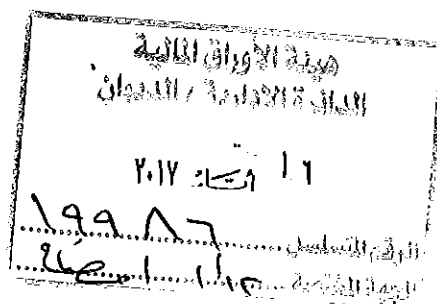 هيئة الأوراق المالية
الدائرة الإدارية / الديوان
١٦ آب ٢٠١٧
الرقم المتسلسل ١٩٩٨٦
الجهة المختصة